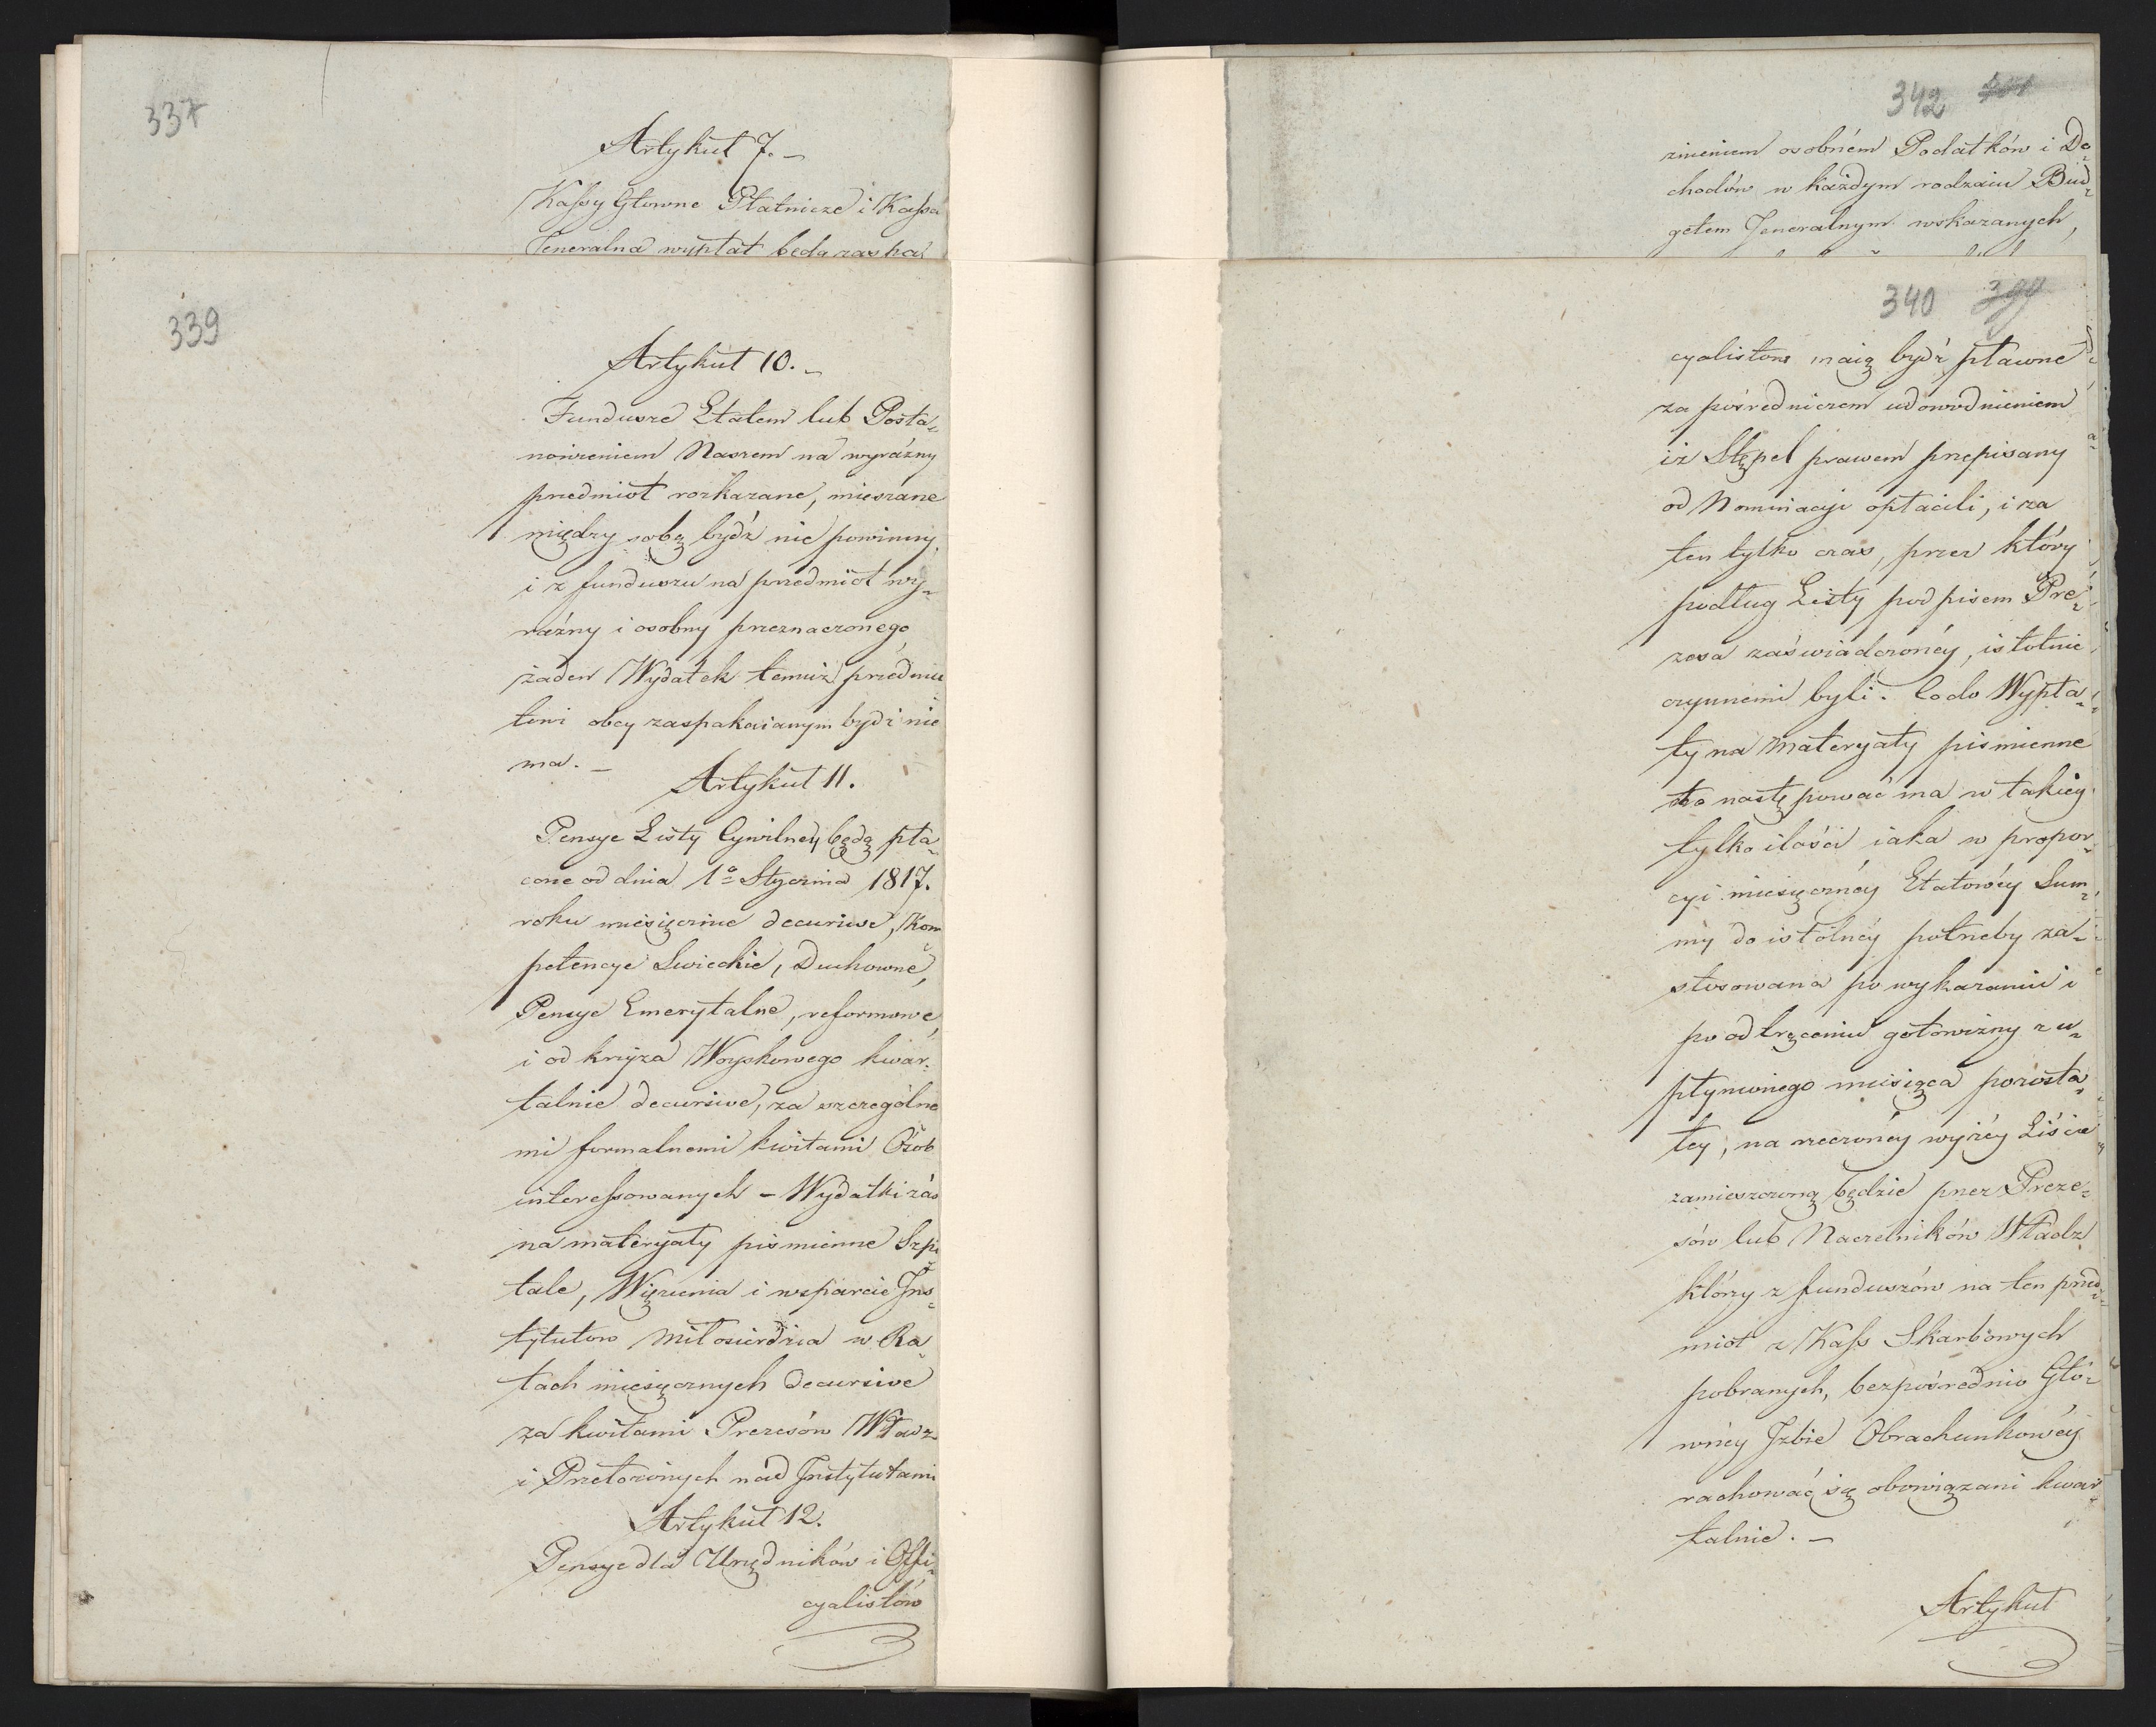 337
Artykuł 7. –
Kassy Głowne Płatnicze i Kassa
Jeneralna wypłat będą zaspa¬
339
Artykuł 10. –
Fundusze Etatem lub Posta¬
nowieniem Naszem na wyraźny
przedmiot rozkazane, mieszane
między sobą bydź nie powinny,
i z funduszu na przedmiot wy¬
raźny i osobny przeznaczonego,
żaden Wydatek temuż przedmio
towi obcy zaspakaianym bydź nie
ma. –
Artykuł 11.
Pensye Listy Cywilney będą pła¬
cone od dnia 1º Stycznia 1817.
roku miesięcznie decursive, Kom
petencye Swieckie, Duchowne,
Pensye Emerytalne, reformowe,
i od krzyża Woyskowego kwar¬
talnie decursive, za szczególne
mi formalnemi kwitami Osob
interessowanych – Wydatki zaś
na materyały piśmienne Szpi
tale, Więzienia i wsparcie Ins¬
tytutow miłosierdzia w Ra¬
tach miesięcznych decursive
za kwitami Prezesów Władz
i Przełożonych nad Instytutami
Artykuł 12.
Pensye dla Urzędników i Offi¬
cyalistów
342
znieniem osobném Podatków i Do
chodów w każdym rodzaiu Bud¬
getem Jeneralnym wskazanych,
340 399
cyalistow maią bydź pławne
za pośredniczem udowodnieniem
iż Stępel prawem przepisany
od Nominacyi opłacili, i za
ten tylko czas, przez który
podług Listy podpisem Pre¬
zesa zaświadczonéy, istotnie
czynnemi byli. Co do Wypła¬
ty na Materyały piśmienne
ta następować ma w takiey
tylko ilości iaka w propor¬
cyi miesięcznéy Etatowéy Sum¬
my do istotnéy potrzeby za¬
stosowana po wykazaniu i
po odtrąceniu gotowizny z u¬
płynionego miesiąca pozosta¬
łey, na rzeczonéy wyżéy Liście
zamieszczoną będzie przez Preze¬
sów lub Naczelników Władz
którzy z funduszów na ten przed¬
miot z Kass Skarbowych
pobranych, bezpośrednio Głó¬
wnéy Izbie Obrachunkowéy
rachować się obowiązani kwar¬
talnie. –
Artykuł